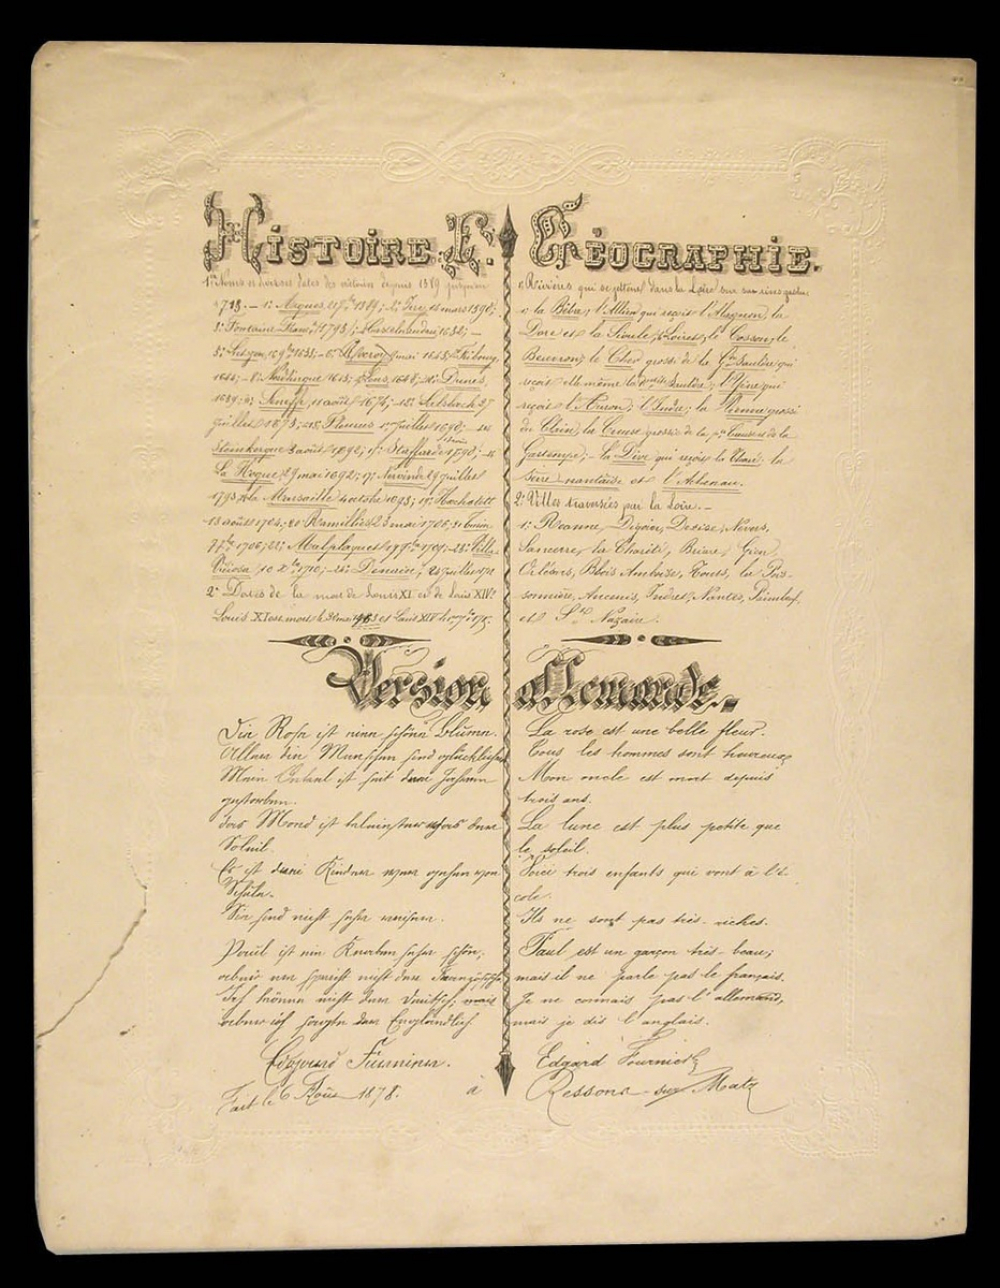 Histoire. E. Géographie.
1º Noms et diverses dates des victoires depuis 1589 jusqu'en
1713. — 1: Arques, 21 7bre 1589; 2: Ivry, 14 mars 1590;
3: Fontaine Franc;
5: 1635; — 6: Rocroy, 9 mai 1643; Fribourg,
1644; — 8: Nordlingue 1645; Lens, 1648; Dunes,
Seneff, 11 août 1674; — 12:
juillet Fleurus 1er juillet 1690; —
Steinkerque 3 août 1692; Staffarde 1690; —
La Hogue, 29 mai 1692; 17: Nerwinde 29 juillet
1793 La Marsaille 4 octobre 1693; 19: Hochstett
13 août 1704; 20 Ramillies 23 mai 1706; 21 Turin
7 7bre 1706; 22: Malplaquet 1709; — 23: Villa-
Viciosa, 10 Xbre 1710; — 24: Denain, 24 juillet 1712
2º Dates de la mort de Louis XI et de Louis XIV:
Louis XI est mort le et Louis XIV le
Rivières qui se jettent dans la Loire sur sa rive gauche
la Bèbre; l'Allier qui reçoit l'Alagnon, la
Dore et la Sioule; le Loiret; le Cosson; le
Beuvron; le Cher grossi de la Gde Sauldre qui
reçoit elle même la petite Sauldre; l'Yèvre qui
reçoit l'Auron; l'Indre; la Vienne grossi
du Clain, la Creuse grossie de la pte Creuse et de la
Gartempe; — la Dive qui reçoit le Thouet; la
Sèvre nantaise et l'Achenau.
2º Villes traversées par la Loire. —
1: Roanne, Digoin, Decise, Nevers,
Sancerre, la Charité, Briare, Gien,
Orléans, Blois Amboise, Tours, la Pois-
sonnière, Ancenis, Indret, Nantes, Paimbœf
et St Nazaire.
Version allemande.
Die Rose ist eine schöne Blume.
Alle die Menschen sind glückliche
Mein Onkel ist seit drei Jahren
gestorben.
das Mond ist kleinster als
Soleil.
Es ist drei Kinder gehen von
Schule.
Sie sind nicht sehr reichen.
Paul ist ein Knaben sehr schön;
aber er spricht nicht der Französische
Ich könne nicht der Deutsch; mais
aber ich sagte das Engländlich
Edgard Fournier.
La rose est une belle fleur.
Tous les hommes sont heureux
Mon oncle est mort depuis
trois ans.
La lune est plus petite que
le soleil.
Voici trois enfants qui vont à l'é-
cole.
Ils ne sont pas très-riches.
Paul est un garçon très-beau;
mais il ne parle pas le français.
Je ne connais pas l'allemand,
mais je dis l'anglais.
Edgard Fournier
Fait le 6 Août 1878. à Ressons-sur-Matz